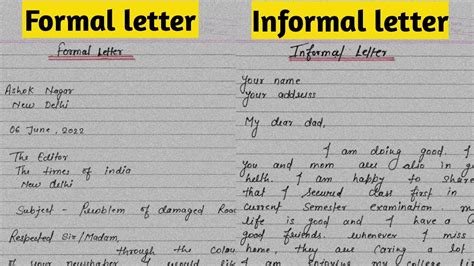 Formal letter
Formal Letter
Ashok Nagar
New Delhi
06 June, 2022
The Editor
The times of india
New delhi
Subject - Problem of damaged Road
Respected Sir/Madam,
through the colou
of your newspaper I would like
Informal letter
Informal Letter
Your name
Your address
My dear dad,
I am doing good. I
You and mom are also in g
helth. I am happy to share
that I secured class first in
current Semester examination. m
life is good and I have a G
good friends. whenever I miss
home, they are caring a lot
I am enjoying my college li